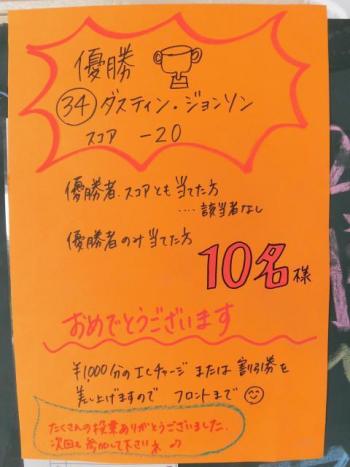 優勝
㉞ ダスティン・ジョンソン
スコア －20
優勝者、スコアとも当てた方
‥‥該当者なし
優勝者のみ当てた方
10名様
おめでとうございます
¥1,000分のICチャージ または 割引券を
差し上げますので フロントまで☺
たくさんの投票ありがとうございました。
次回も参加して下さいネ♪